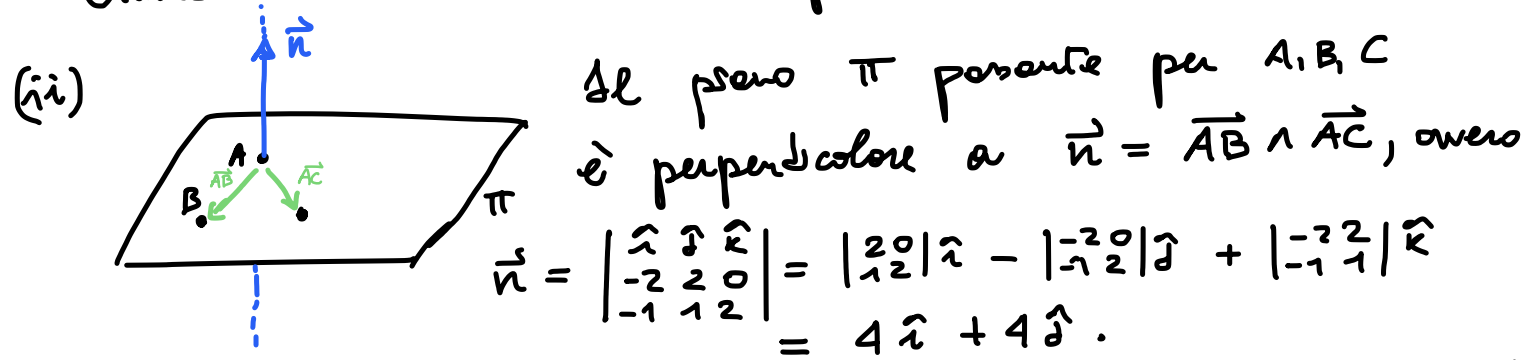 (ii)
n⃗
A
B
AB⃗
AC⃗
π
Il piano π passante per A, B, C
è perpendicolare a n⃗ = AB⃗ ∧ AC⃗, ovvero
n⃗ = | î ĵ k̂ ; -2 2 0 ; -1 1 2 | = | 2 0 ; 1 2 | î - | -2 0 ; -1 2 | ĵ + | -2 2 ; -1 1 | k̂
= 4 î + 4 ĵ .